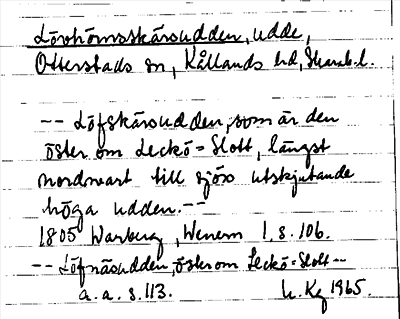 Lövhomsskärsudden, udde,
Otterstads sn, Kållands hd, Skarab.l.
-- Löfskärsudden, som är den
öster om Leckö=Slott, längst
nordwart till sjöss utskjutande
höga udden. --
1805 Warberg, Wenern 1, s. 106.
-- Löfnäsudden, öster om Leckö=Slott --
a. a. s. 113. U. Kg 1965.